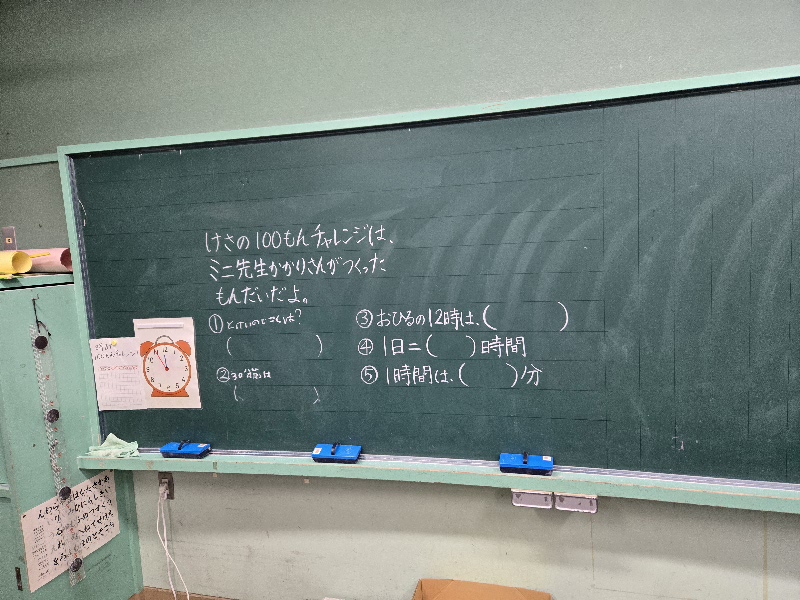 けさの100もんチャレンジは、
ミニ先生かかりさんがつくった
もんだいだよ。
① とけいのじこくは?
( )
② 30分前は
( )
③ おひるの12時は、( )
④ 1日=( )時間
⑤ 1時間は、( )分